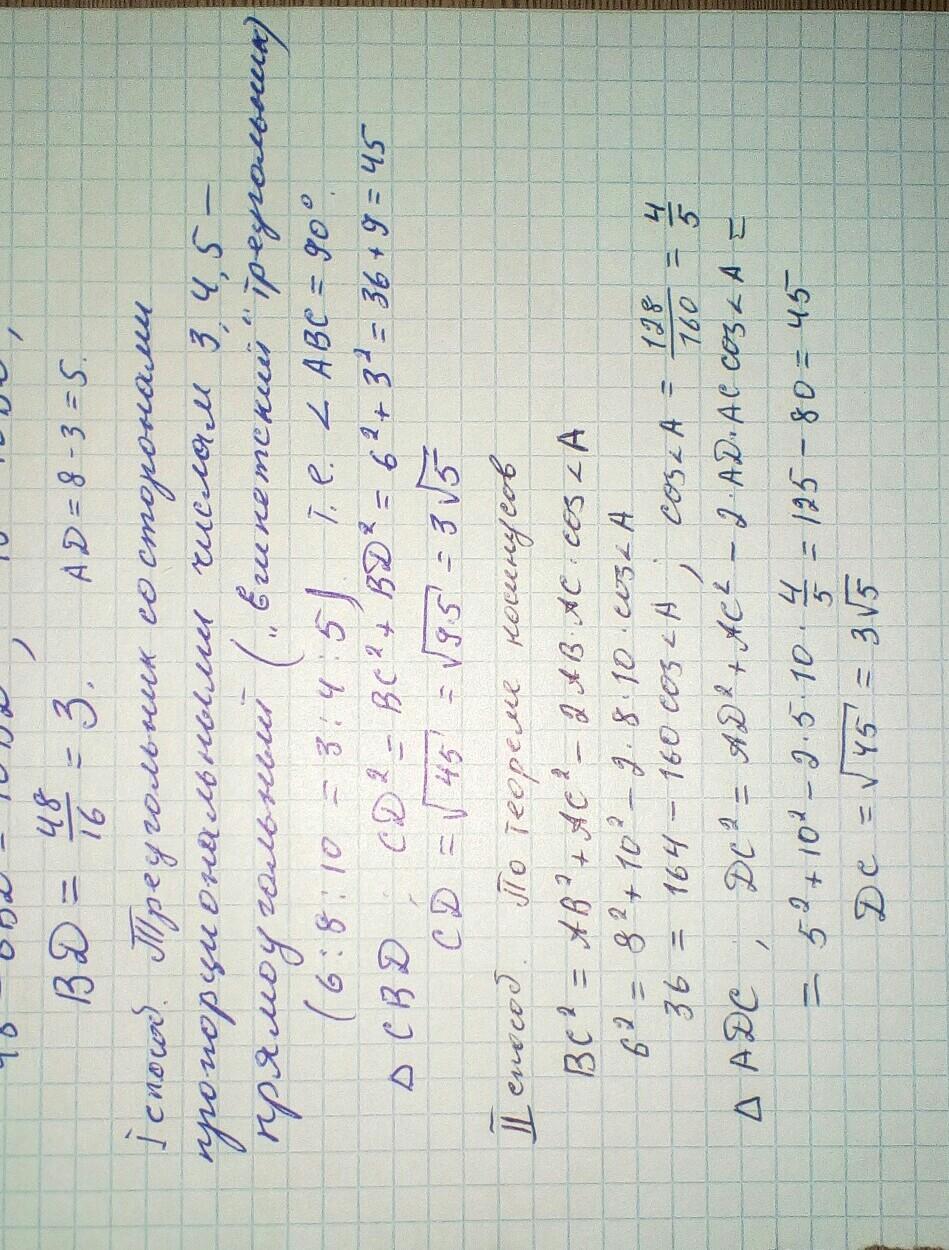 BD = 48/16 = 3. AD = 8 - 3 = 5.
I способ. Треугольник со сторонами
пропорциональными числам 3, 4, 5 —
прямоугольный („Египетский" треугольник)
(6 : 8 : 10 = 3 : 4 : 5) т. е. < ABC = 90°.
Δ CBD , CD² = BC² + BD² = 6² + 3² = 36 + 9 = 45
CD = √45 = √9·5 = 3√5
II способ. По теореме косинусов
BC² = AB² + AC² - 2 AB·AC·cos<A
6² = 8² + 10² - 2·8·10·cos<A
36 = 164 - 160 cos<A , cos<A = 128/160 = 4/5
Δ ADC , DC² = AD² + AC² - 2·AD·AC cos<A =
= 5² + 10² - 2·5·10·4/5 = 125 - 80 = 45
DC = √45 = 3√5